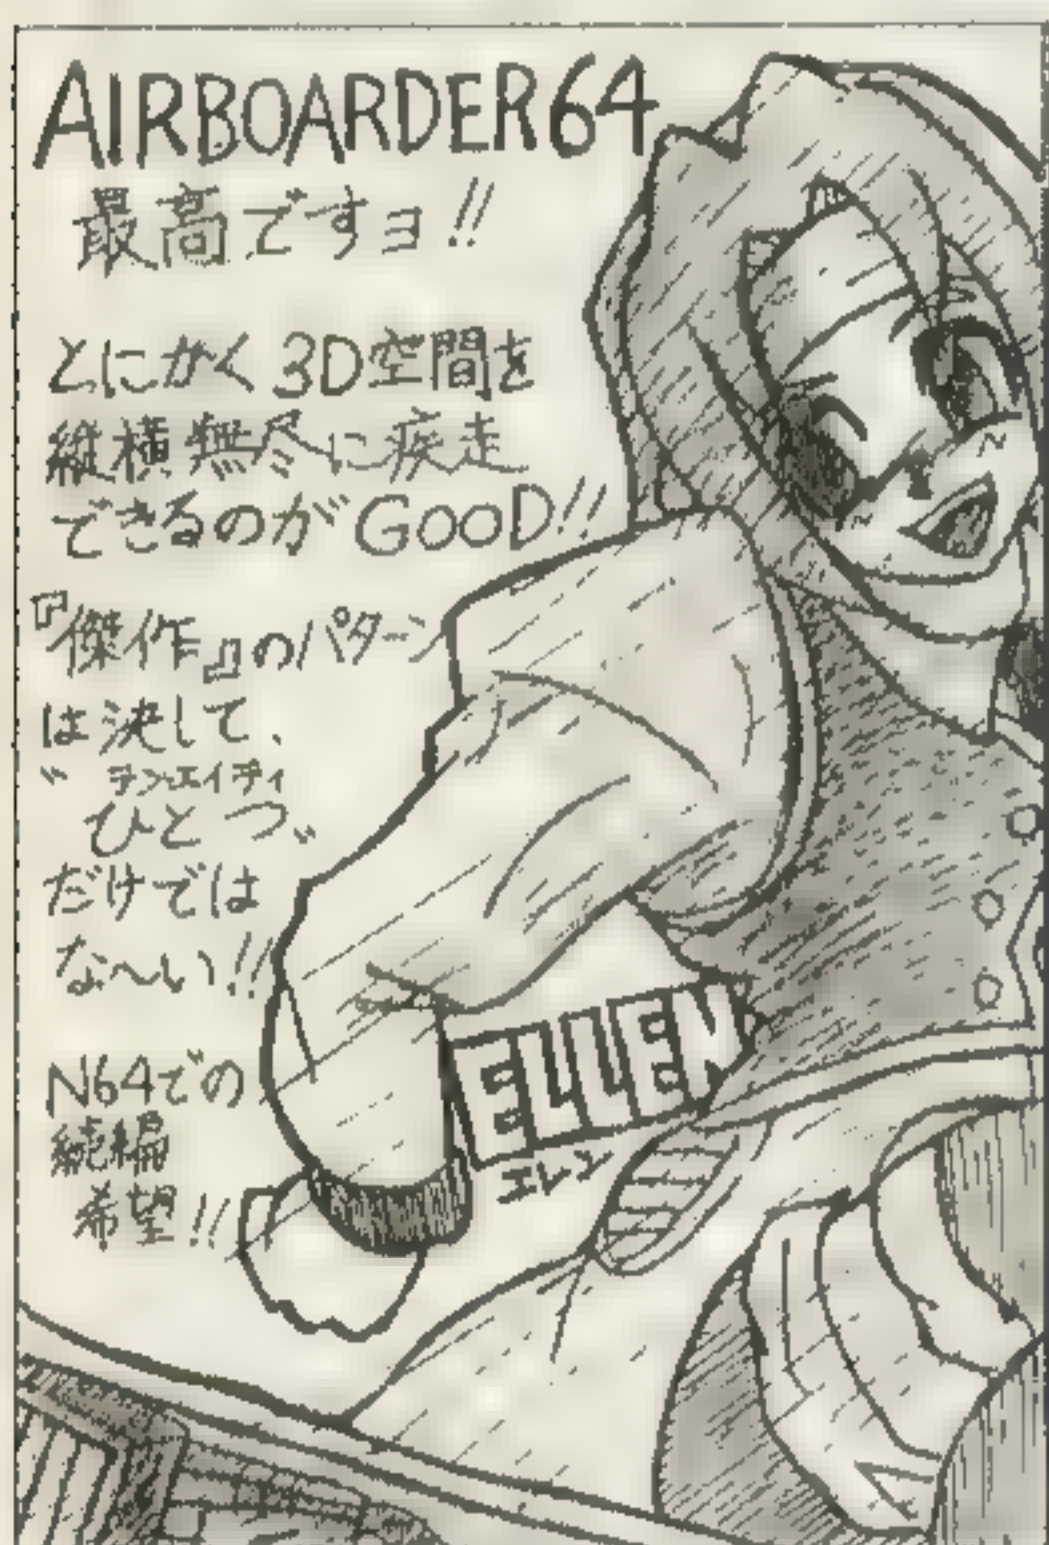 AIRBOARDER64
最高ですヨ!!
とにかく3D空間を
縦横無尽に疾走
できるのがGOOD!!
『傑作』のパターン
は決して、
テン・エイティ
〝ひとつ〟
だけでは
な〜い!!
N64での
続編
希望!!
ELLEN
エレン